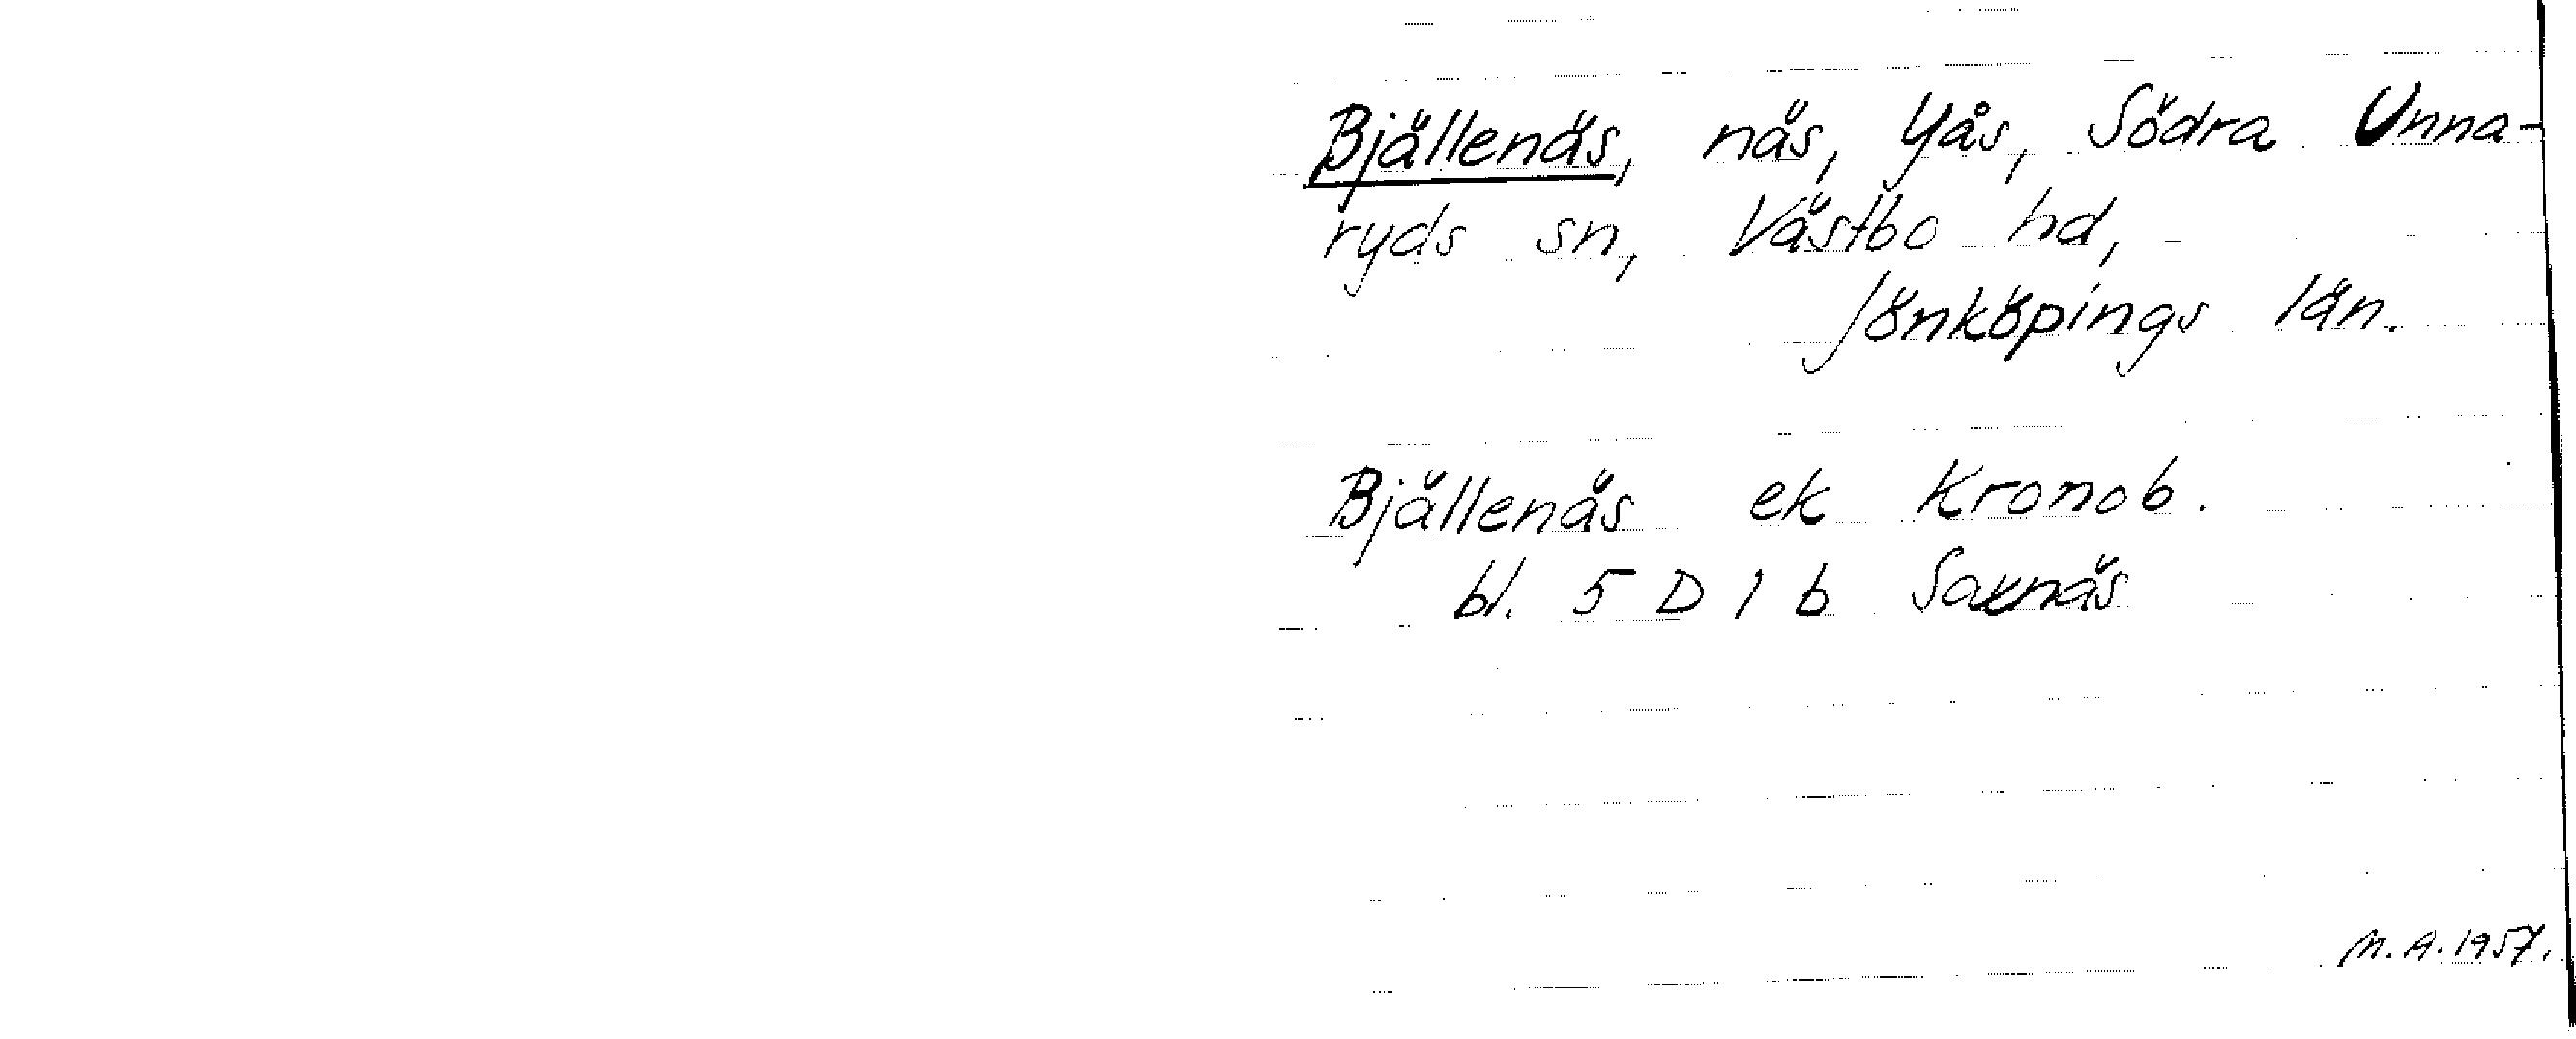 Bjällenäs, näs, Yås, Södra Unna-
ryds sn, Västbo hd,
Jönköpings län.
Bjällenäs ek Kronob.
bl. 5 D 1 b Saxnäs
M.A. 1957.